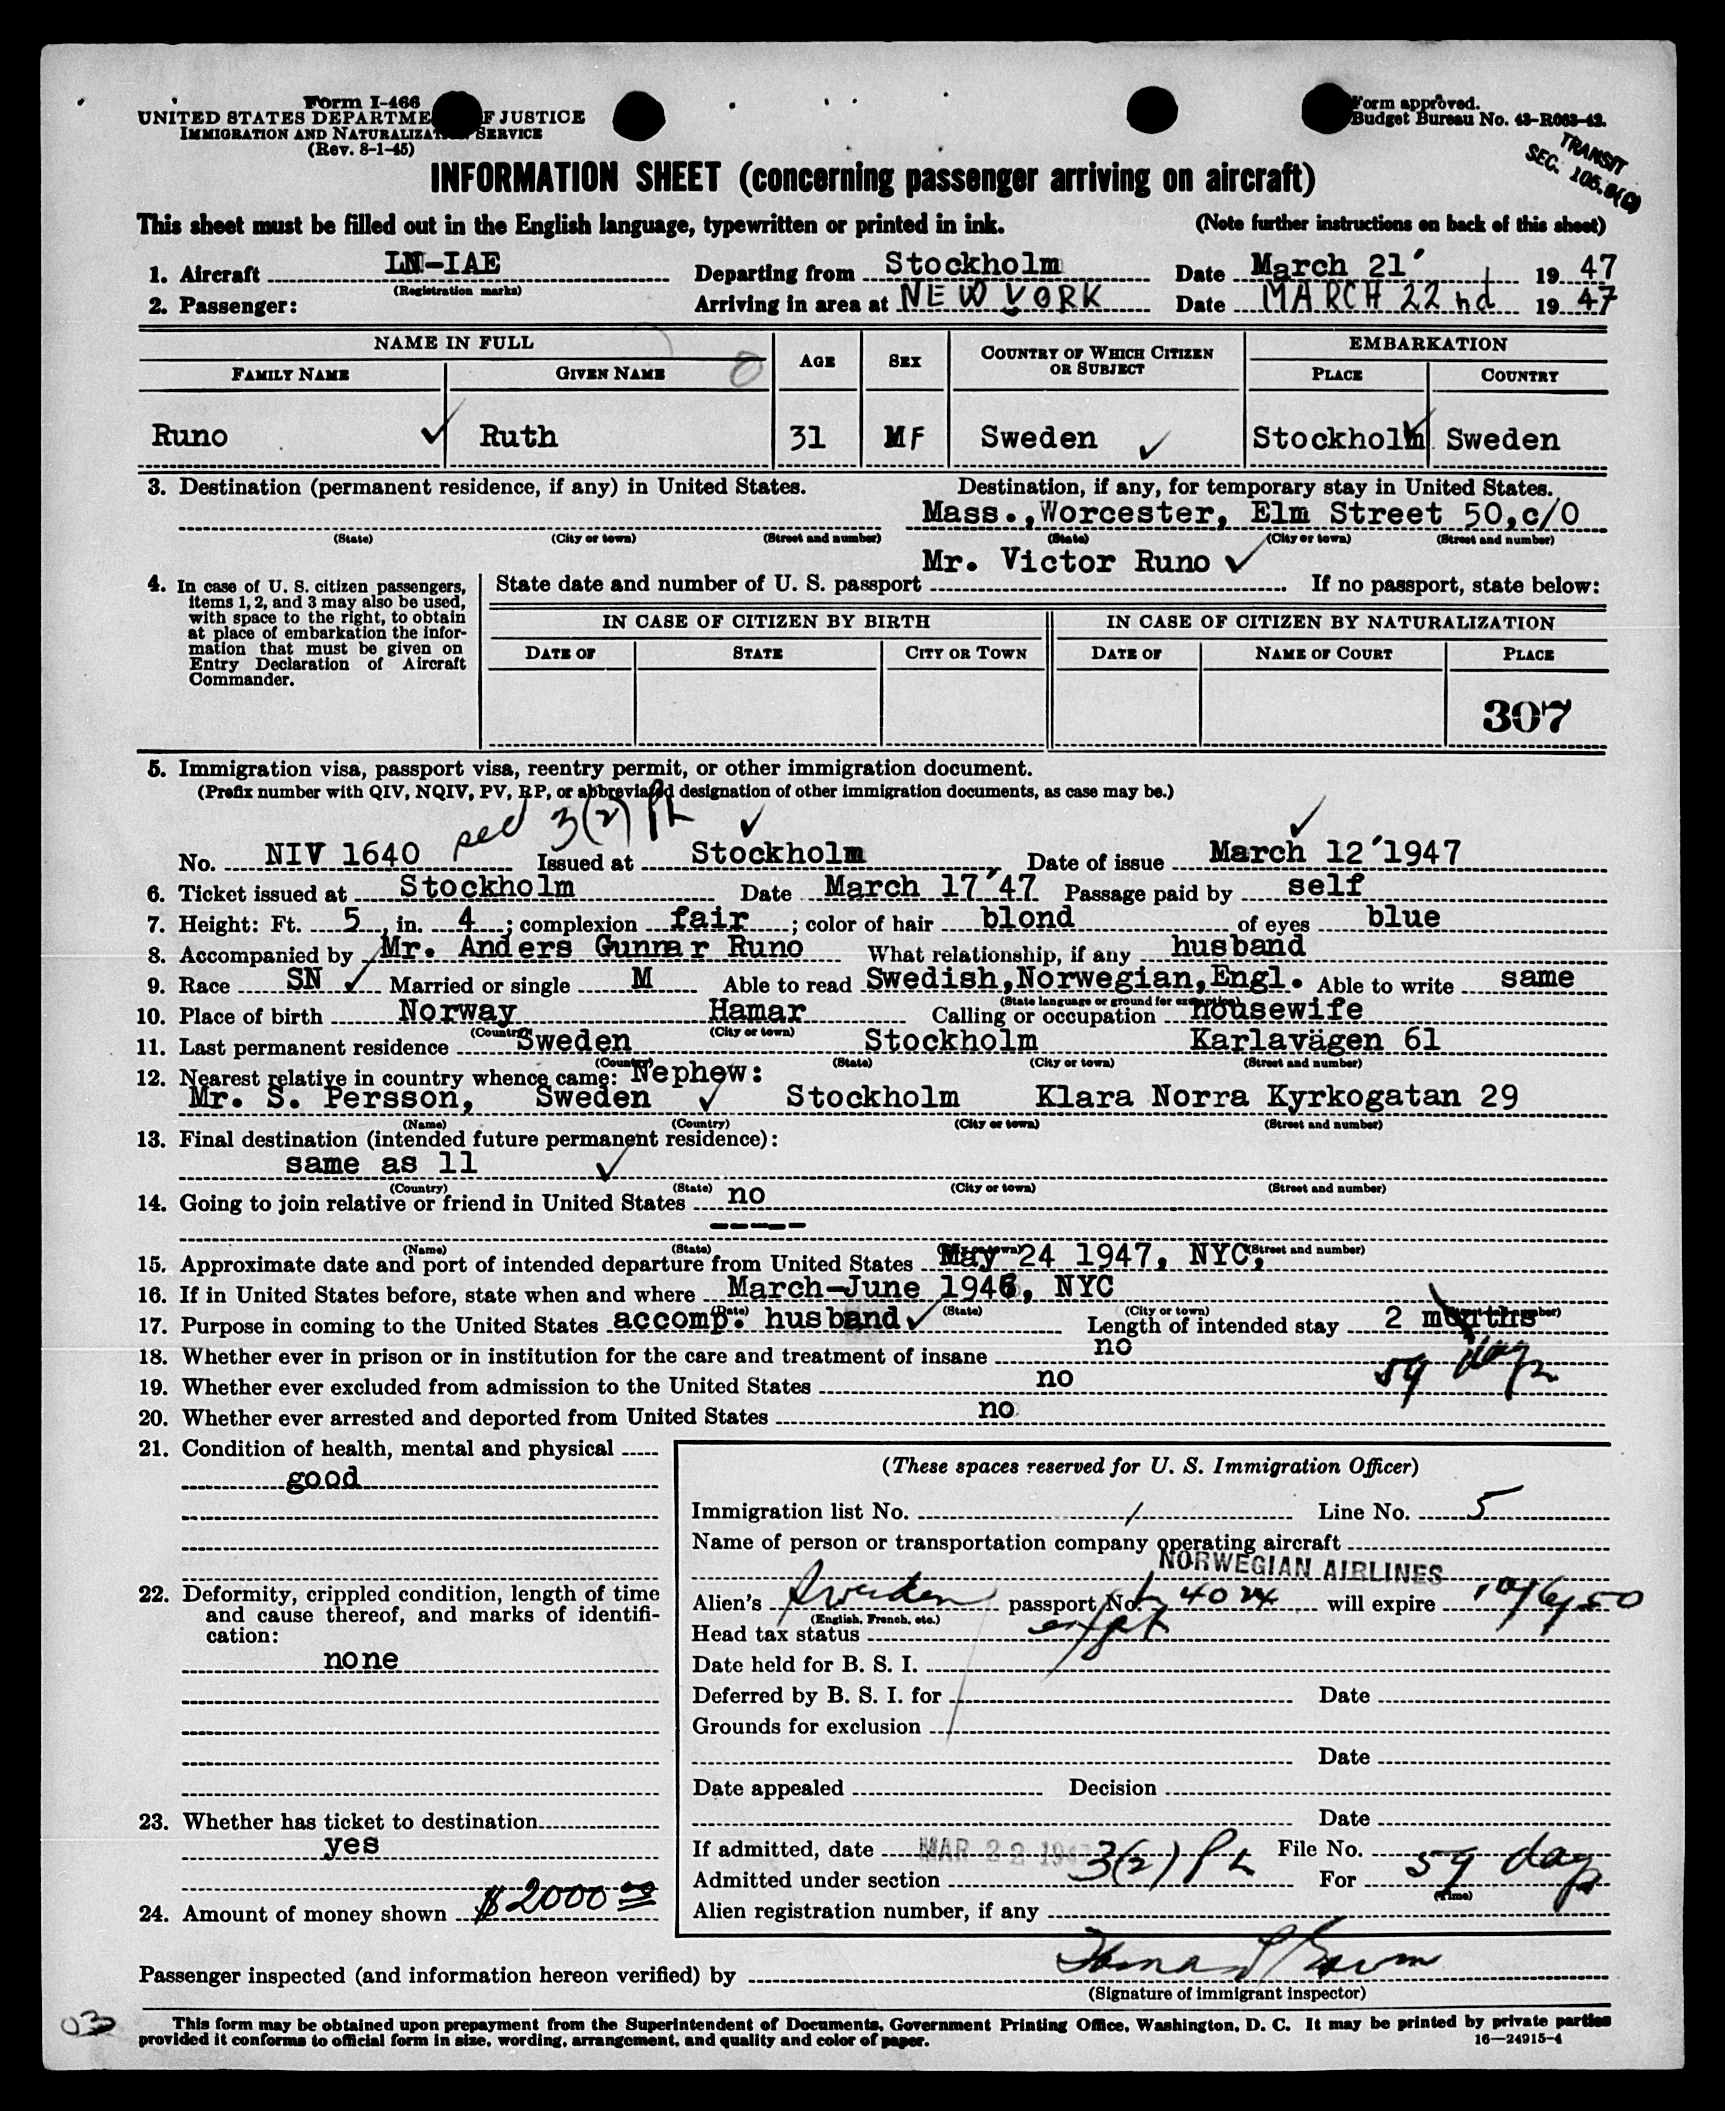 Form I-466
UNITED STATES DEPARTME F JUSTICE
IMMIGRATION AND NATURALIZATION SERVICE
(Rev. 8-1-45)
Form approved.
Budget Bureau No. 43-R063-42.
TRANSIT
SEC. 106.
INFORMATION SHEET (concerning passenger arriving on aircraft)
This sheet must be filled out in the English language, typewritten or printed in ink. (Note further instructions on back of this sheet)
1. Aircraft LN-IAE Departing from Stockholm Date March 21' 19 47
(Registration marks)
2. Passenger: Arriving in area at NEW YORK Date MARCH 22nd 19 47
NAME IN FULL AGE SEX COUNTRY OF WHICH CITIZEN OR SUBJECT EMBARKATION
FAMILY NAME GIVEN NAME PLACE COUNTRY
Runo Ruth 31 MF Sweden Stockholm Sweden
3. Destination (permanent residence, if any) in United States. Destination, if any, for temporary stay in United States.
Mass.,Worcester, Elm Street 50,c/O
(State) (City or town) (Street and number) (State) (City or town) (Street and number)
Mr. Victor Runo
4. In case of U. S. citizen passengers, items 1, 2, and 3 may also be used, with space to the right, to obtain at place of embarkation the information that must be given on Entry Declaration of Aircraft Commander.
State date and number of U. S. passport If no passport, state below:
IN CASE OF CITIZEN BY BIRTH IN CASE OF CITIZEN BY NATURALIZATION
DATE OF STATE CITY OR TOWN DATE OF NAME OF COURT PLACE
307
5. Immigration visa, passport visa, reentry permit, or other immigration document.
(Prefix number with QIV, NQIV, PV, RP, or abbreviated designation of other immigration documents, as case may be.)
sec 3(2)
No. NIV 1640 Issued at Stockholm Date of issue March 12'1947
6. Ticket issued at Stockholm Date March 17'47 Passage paid by self
7. Height: Ft. 5, in. 4; complexion fair; color of hair blond of eyes blue
8. Accompanied by Mr. Anders Gunnar Runo What relationship, if any husband
9. Race SN Married or single M Able to read Swedish,Norwegian,Engl. Able to write same
(State language or ground for exemption)
10. Place of birth Norway Hamar Calling or occupation housewife
(Country) (City or town)
11. Last permanent residence Sweden Stockholm Karlavägen 61
(Country) (State) (City or town) (Street and number)
12. Nearest relative in country whence came: Nephew:
Mr. S. Persson, Sweden Stockholm Klara Norra Kyrkogatan 29
(Name) (Country) (City or town) (Street and number)
13. Final destination (intended future permanent residence):
same as 11
(Country) (State) (City or town) (Street and number)
14. Going to join relative or friend in United States no
-----
(Name) (State) (City or town) (Street and number)
15. Approximate date and port of intended departure from United States May 24 1947, NYC,
16. If in United States before, state when and where March-June 1946, NYC
(Date) (State) (City or town) (Street and number)
17. Purpose in coming to the United States accomp. husband Length of intended stay 2 months
18. Whether ever in prison or in institution for the care and treatment of insane no
59 days
19. Whether ever excluded from admission to the United States no
20. Whether ever arrested and deported from United States no
21. Condition of health, mental and physical
good
22. Deformity, crippled condition, length of time and cause thereof, and marks of identification:
none
23. Whether has ticket to destination
yes
24. Amount of money shown $2000 00
(These spaces reserved for U. S. Immigration Officer)
Immigration list No. 1 Line No. 5
Name of person or transportation company operating aircraft
NORWEGIAN AIRLINES
Alien's Sweden passport No. 4024 will expire
(English, French, etc.)
Head tax status
Date held for B. S. I.
Deferred by B. S. I. for Date
Grounds for exclusion
Date
Date appealed Decision
Date
If admitted, date MAR 22 1947 File No.
Admitted under section 3(2) For 59 days
(Time)
Alien registration number, if any
Passenger inspected (and information hereon verified) by
(Signature of immigrant inspector)
03
This form may be obtained upon prepayment from the Superintendent of Documents, Government Printing Office, Washington, D. C. It may be printed by private parties
provided it conforms to official form in size, wording, arrangement, and quality and color of paper.
16—24915-4